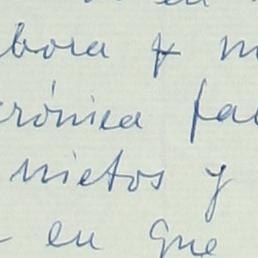 bora y
rónica fa
nietos y
en que